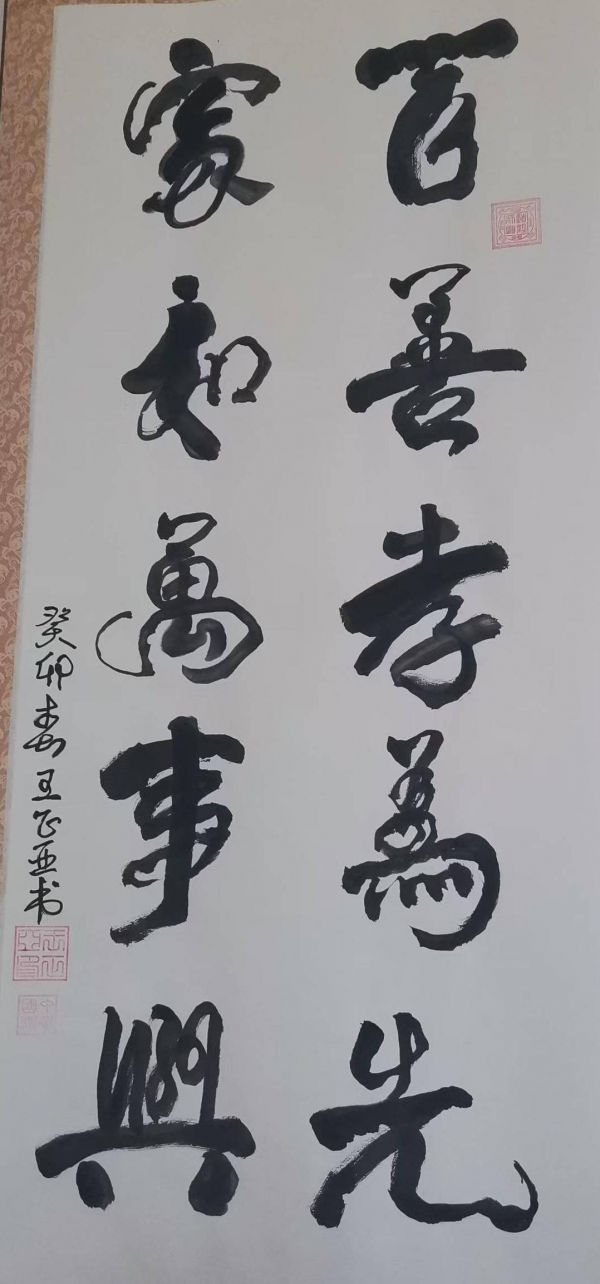 百善孝為先
家和萬事興
癸卯春王正亚书